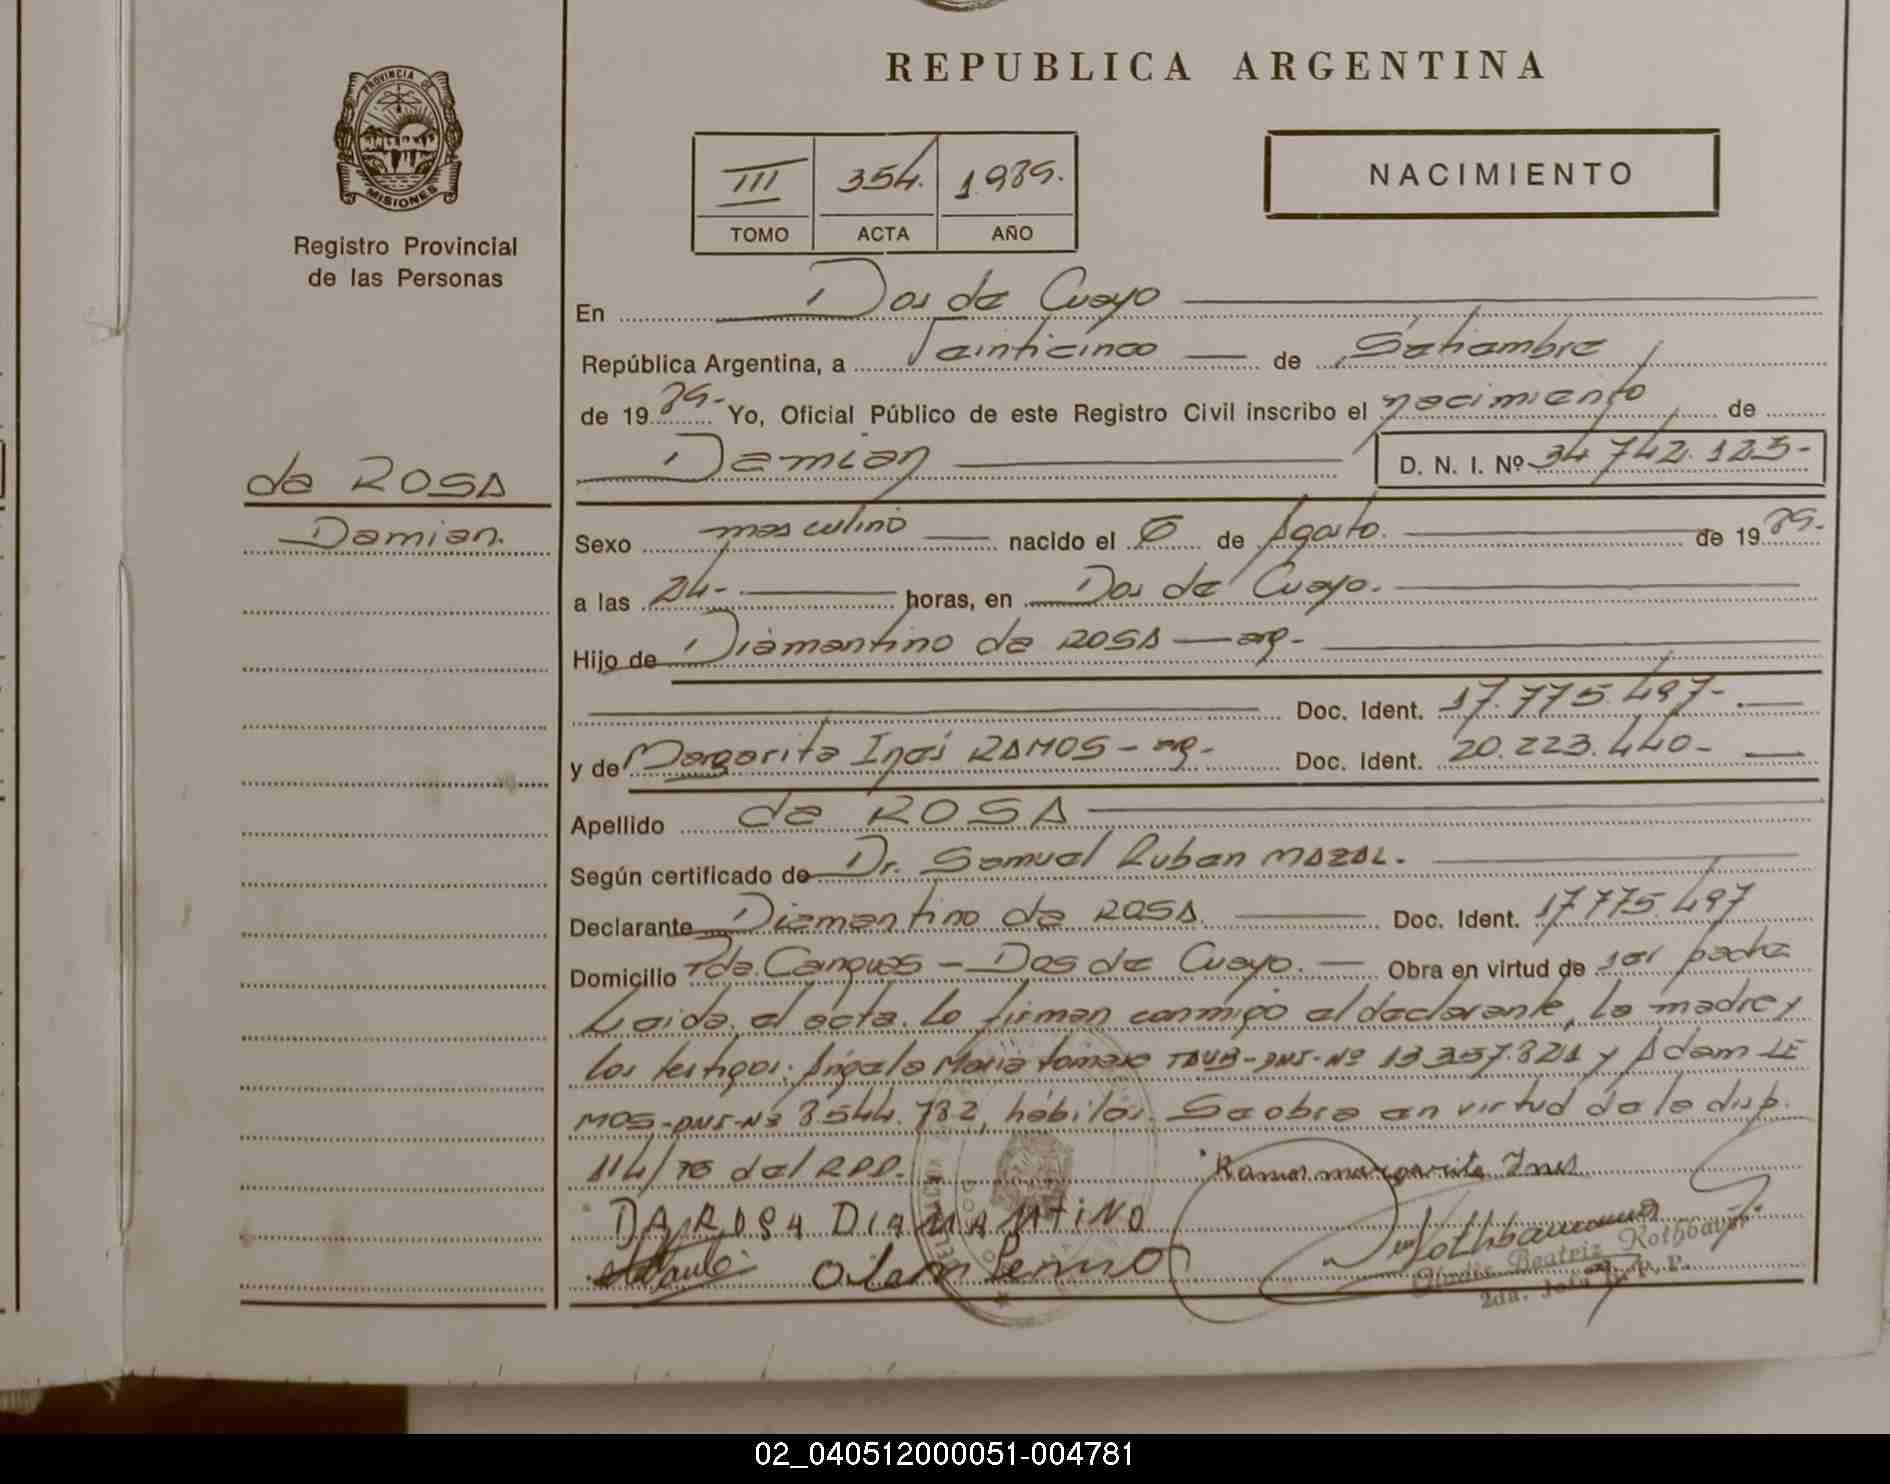 PROVINCIA DE
MISIONES
Registro Provincial
de las Personas
REPUBLICA ARGENTINA
III 354. 1.989.
TOMO ACTA AÑO
NACIMIENTO
En Dos de Mayo
República Argentina, a Veinticinco de Setiembre
de 1989.- Yo, Oficial Público de este Registro Civil inscribo el nacimiento de
Damián D. N. I. Nº 34.742.123-
de ROSA
Damian.
Sexo masculino nacido el 6 de Agosto. de 1989.
a las 24- horas, en Dos de Mayo.
Hijo de Diamantino de ROSA - arg-
Doc. Ident. 17.775.497-
y de Margarita Inés RAMOS - arg- Doc. Ident. 20.223.440-
Apellido de ROSA
Según certificado de Dr. Samuel Ruben MAZAL.
Declarante Diamantino de ROSA. Doc. Ident. 17.775.497
Domicilio Pda. Dos de Mayo. Obra en virtud de ser padre
Leída el acta. La firman conmigo el declarante, la madre y
los testigos: Angela María DNI-Nº 13.357.821 y Adam LE
MOS-DNI-Nº 8.544.782, hábiles. Se obra en virtud de la disp.
114/76 del RPP.
Ramos margarita Ines
DA ROSA DIAMANTINO
Gladis Beatriz Rothbauer
2da. Jefa R. P. P.
02_040512000051-004781